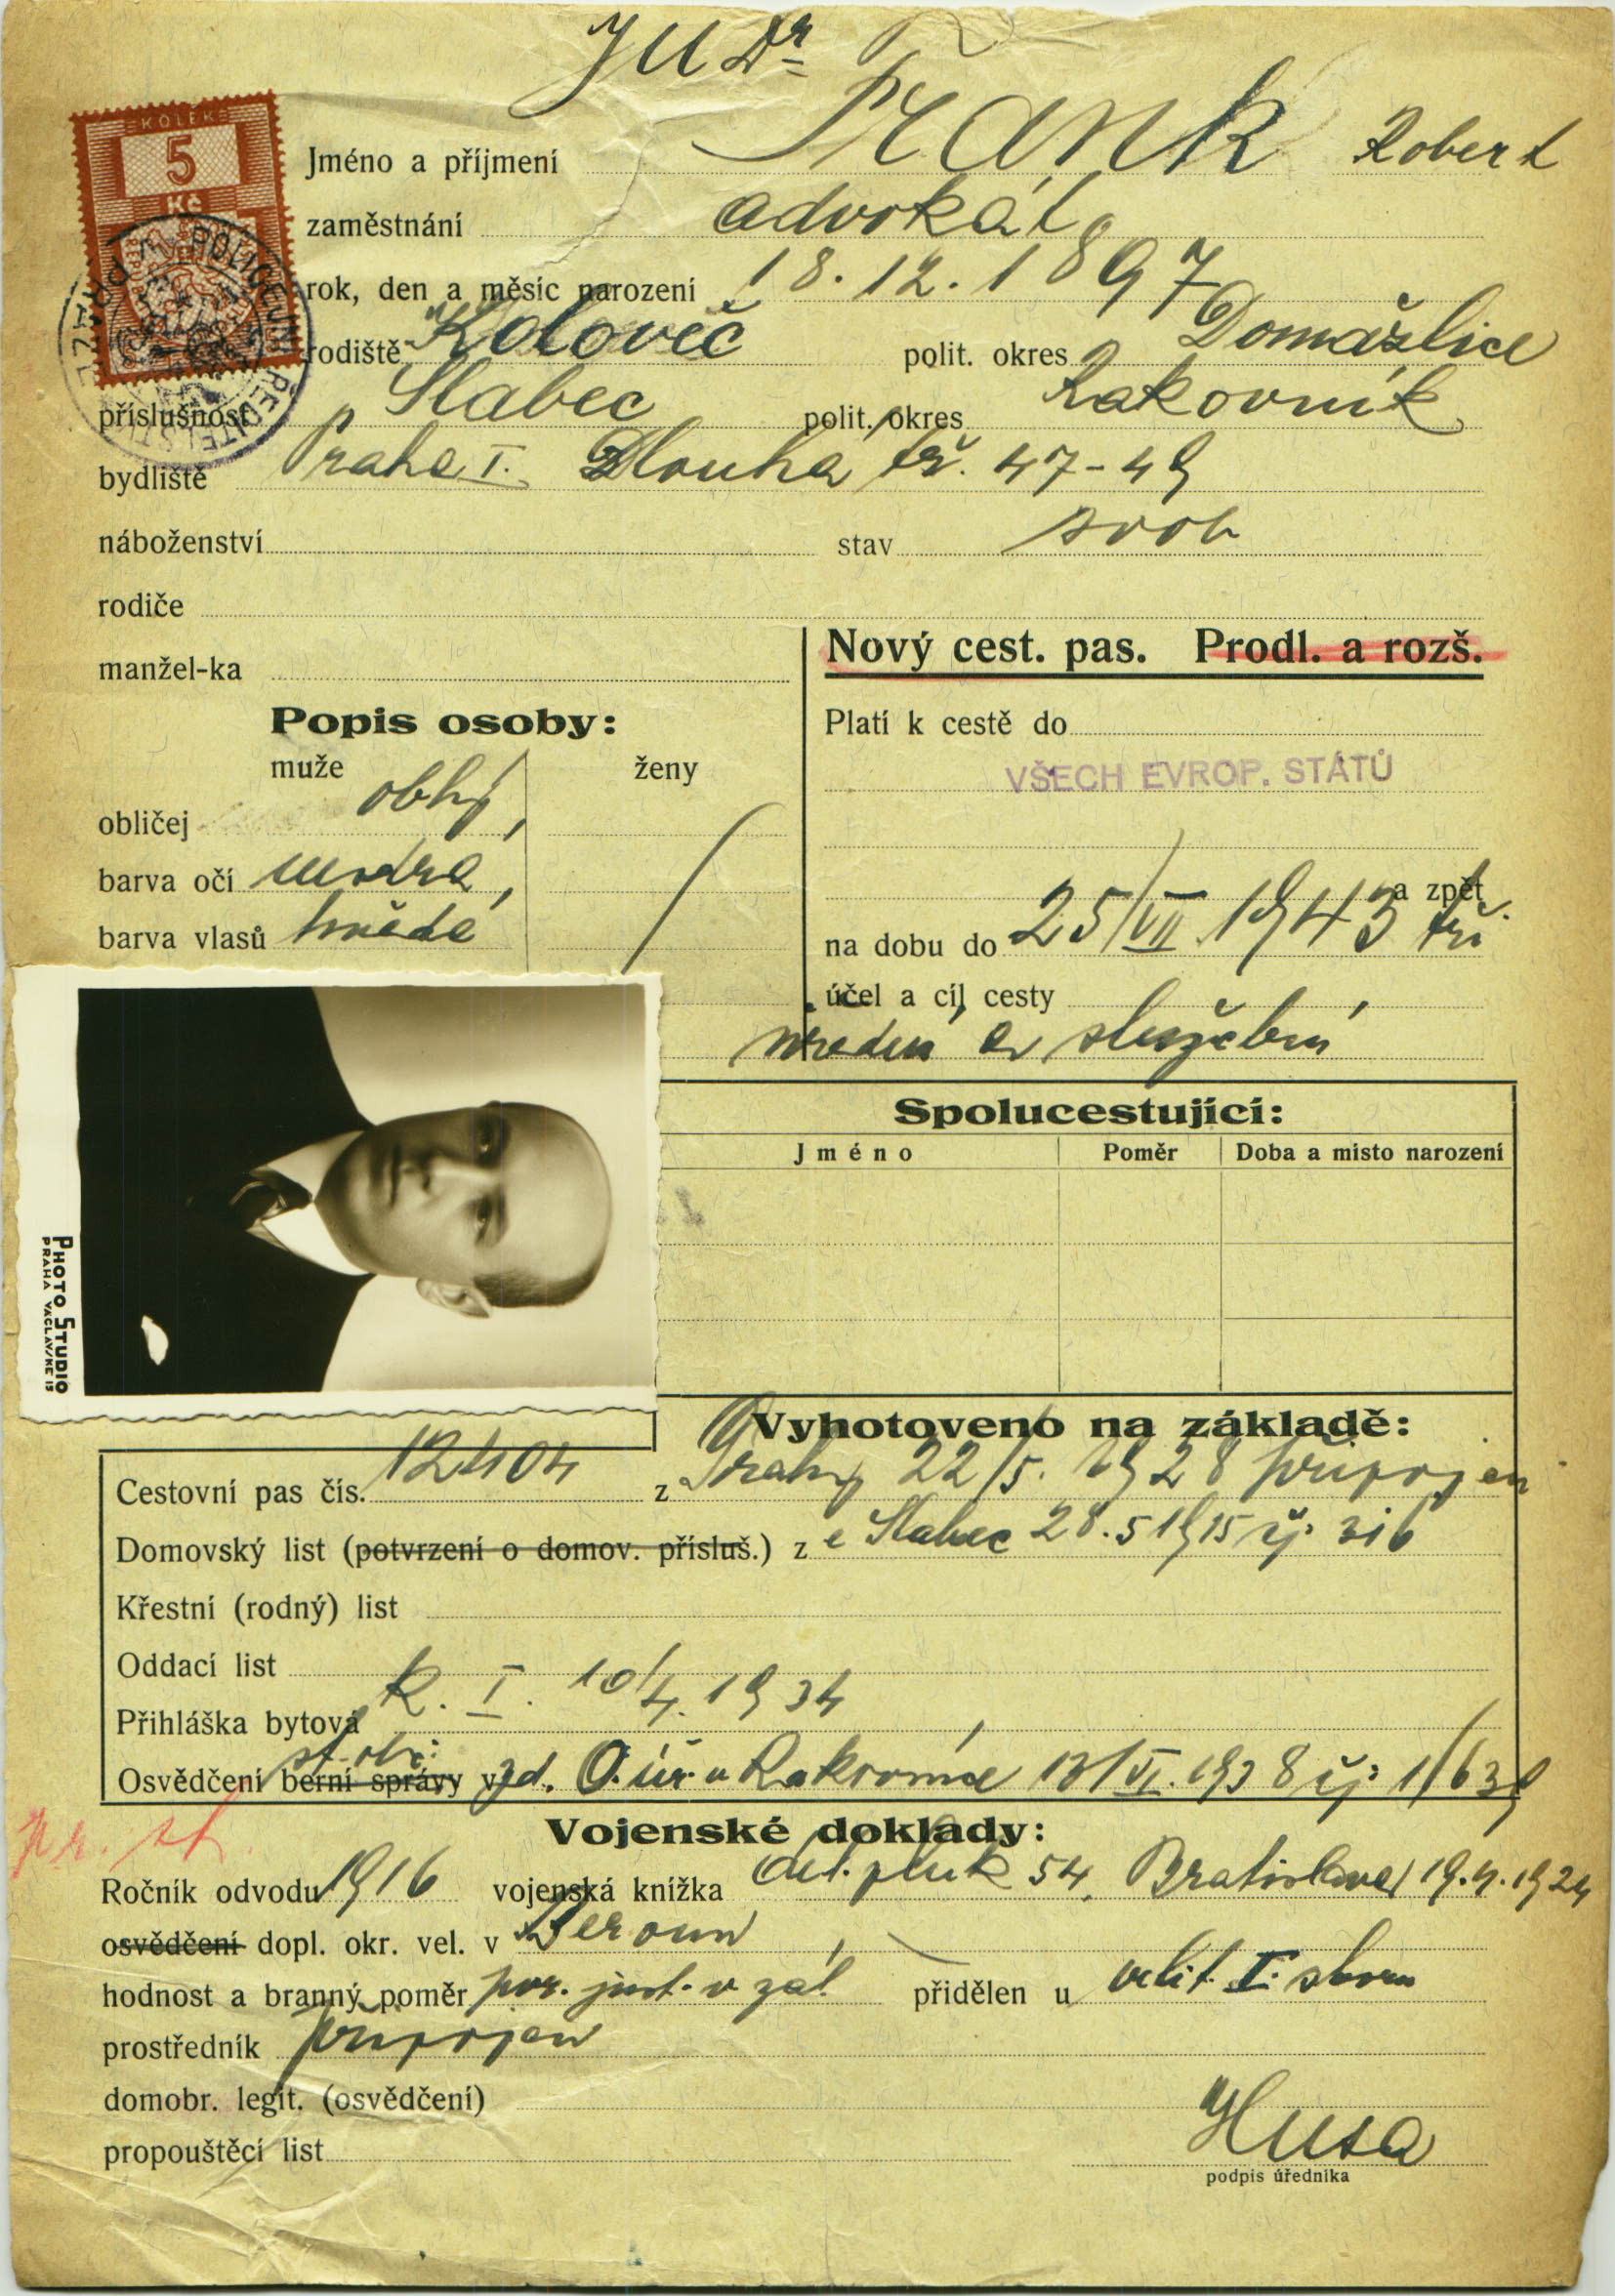 JUDr
KOLEK
5
Kč
Jméno a příjmení Frank Robert
zaměstnání advokát
rok, den a měsíc narození 18.12.1897
rodiště Koloveč polit. okres Domažlice
příslušnost Slabec polit. okres Rakovník
bydliště Praha I. Dlouhá tř. 47-49
náboženství stav svob
rodiče
manžel-ka
Nový cest. pas. Prodl. a rozš.
Popis osoby:
muže ženy
obličej oblý
barva očí modrá
barva vlasů hnědé
Platí k cestě do
VŠECH EVROP. STÁTŮ
a zpět
na dobu do 25/VII 1943 tři
účel a cíl cesty
a služební
Spolucestující:
Jméno Poměr Doba a místo narození
PHOTO STUDIO
PRAHA VÁCLAVSKÉ 15
Vyhotoveno na základě:
Cestovní pas čís. 12404 z Prahy 22/5. 1928 připojen
Domovský list (potvrzení o domov. přísluš.) z e Slabec 28.5 1915 čj. 316
Křestní (rodný) list
Oddací list
Přihláška bytová k. I. 10/4. 1934
st. obč.
Osvědčení berní správy v zd. O. úř. v Rakovníce 13/VI. 1938 čj:
pr. st.
Vojenské doklady:
Ročník odvodu 1916 vojenská knížka děl. pluk 54, Bratislava 19.4.1924
osvědčení dopl. okr. vel. v Beroun
hodnost a branný poměr por. just. v zál. přidělen u velit. I. sboru
prostředník připojen
domobr. legit. (osvědčení)
propouštěcí list
Husa
podpis úředníka